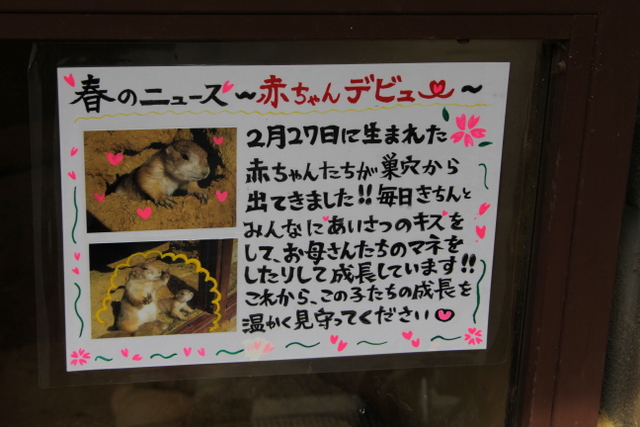 春のニュース〜赤ちゃんデビュー〜
2月27日に生まれた
赤ちゃんたちが巣穴から
出てきました!!毎日きちんと
みんなにあいさつのキズを
して、お母さんたちのマネを
したりして成長しています!!
これから、この子たちの成長を
温かく見守ってください